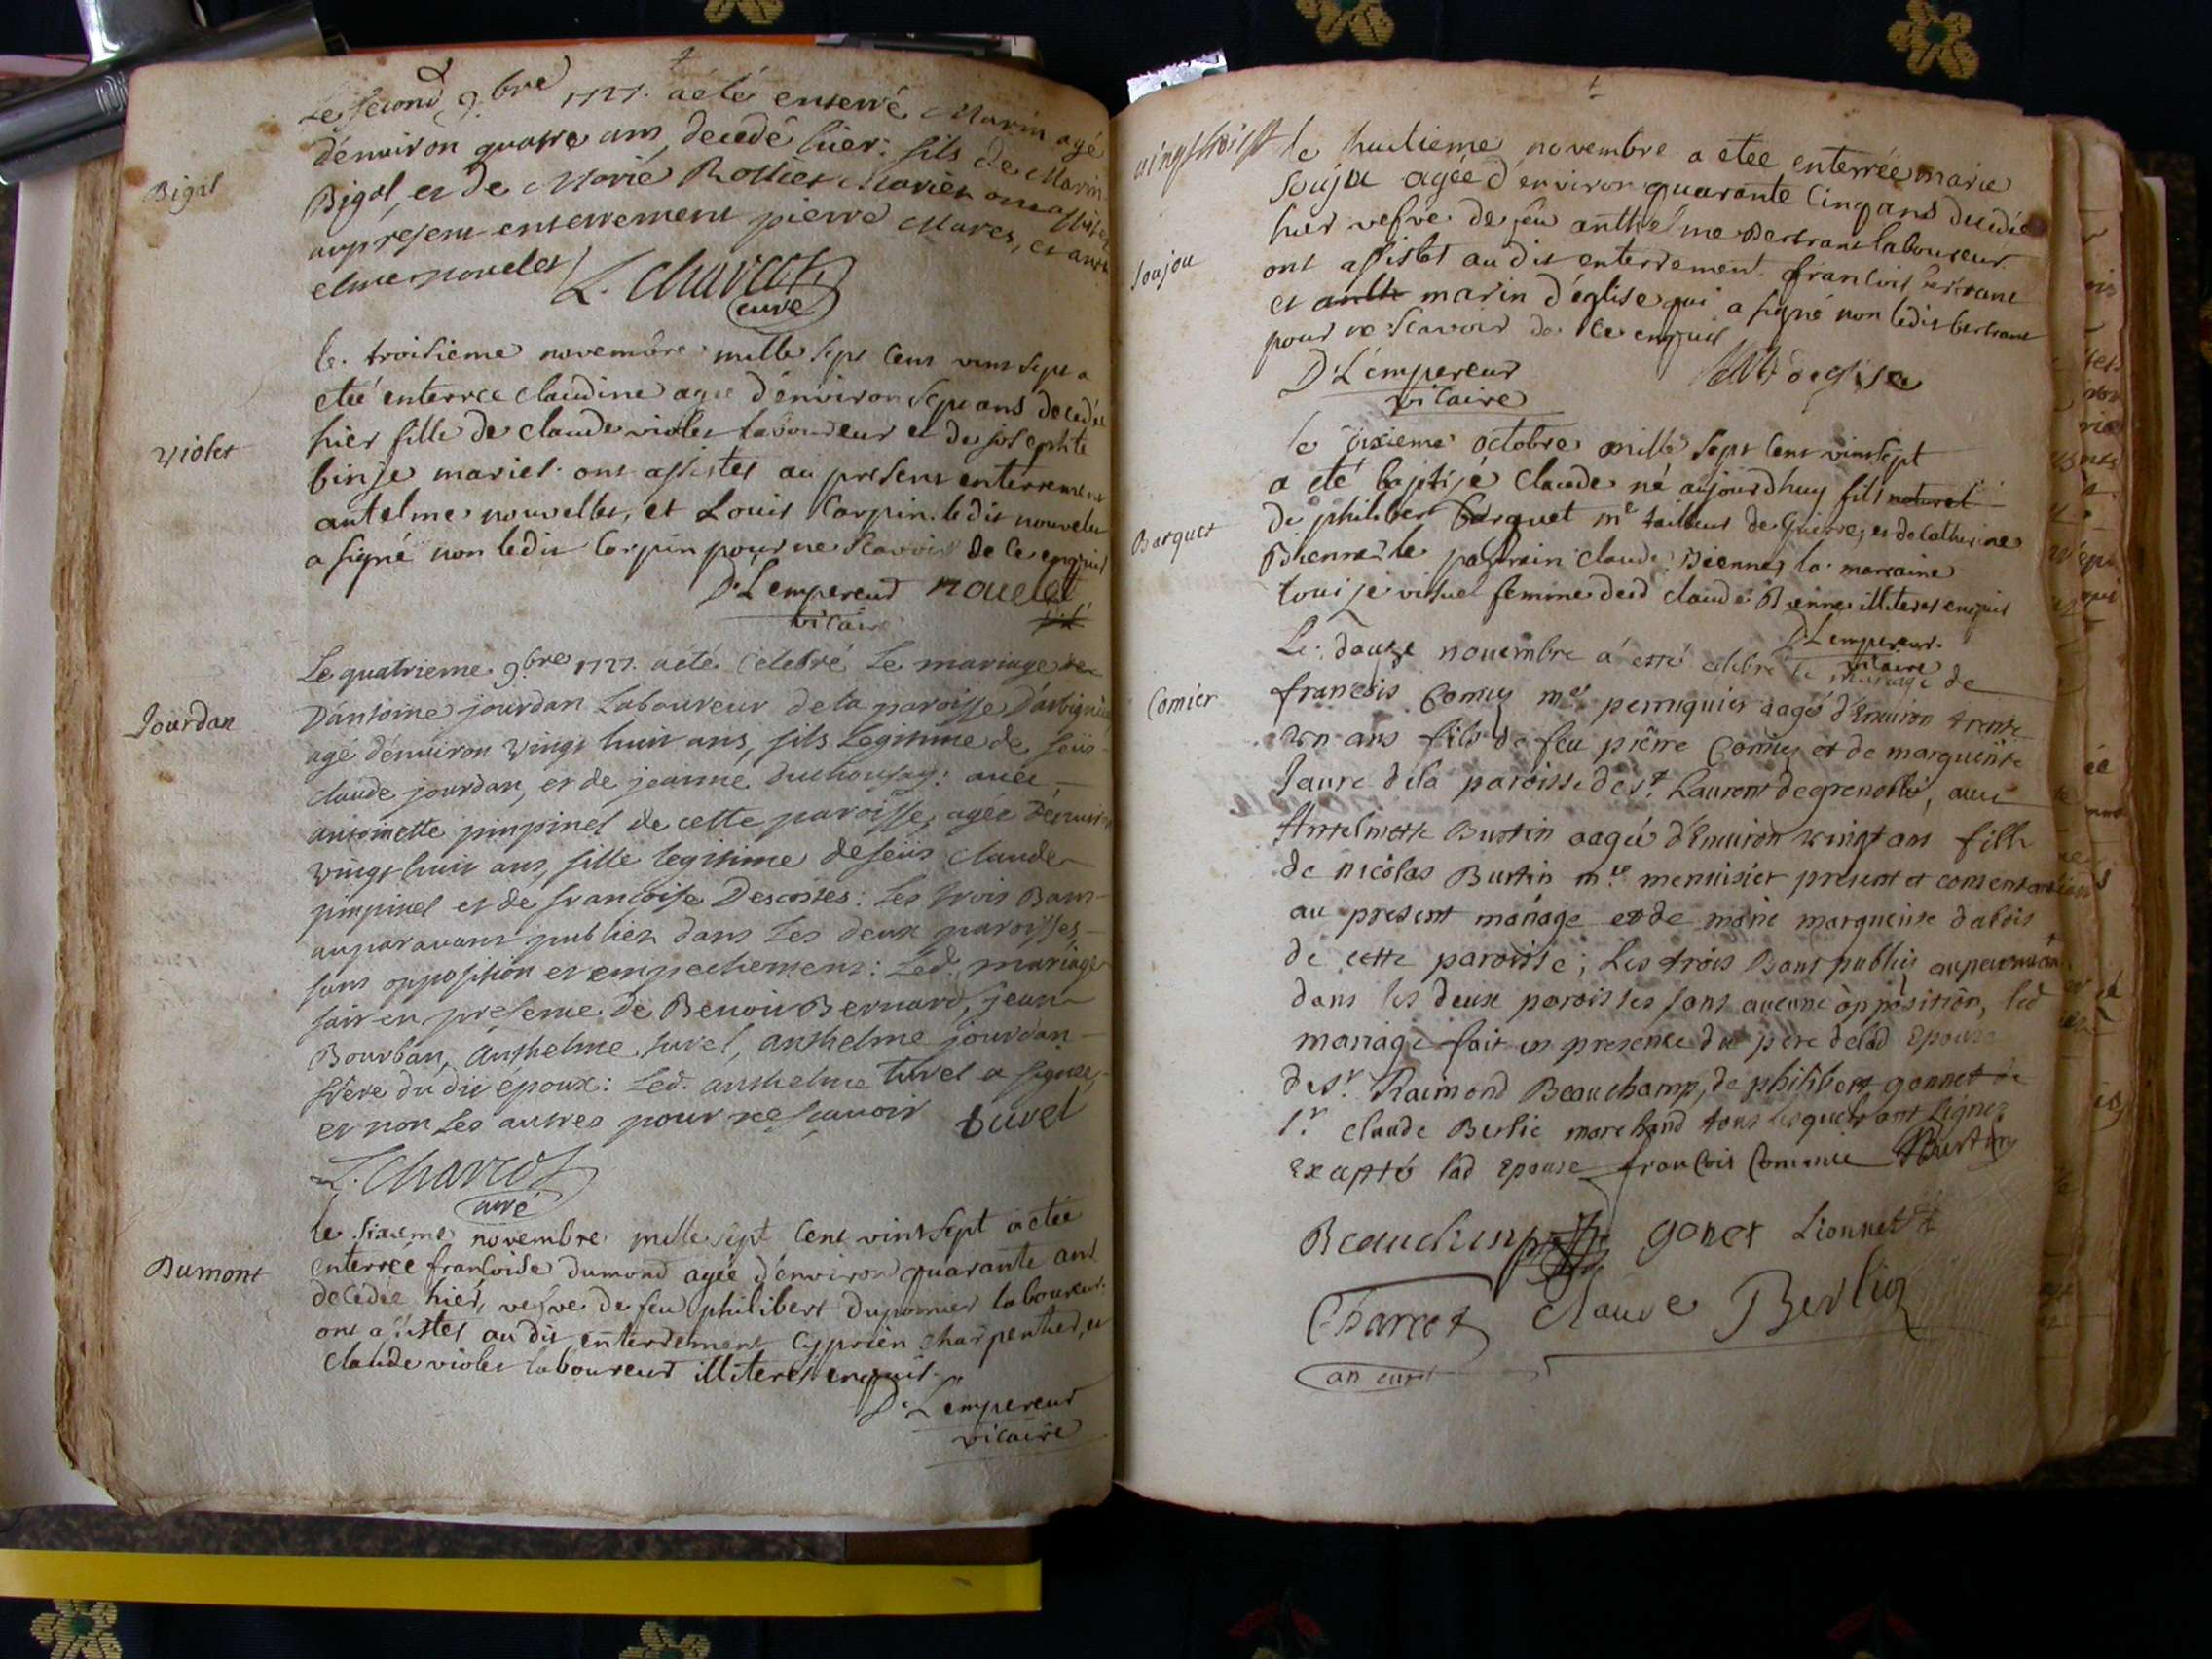 Le second 9.bre 1727. a été enterré Marin agé
d'enuiron quatre ans decedé hier: fils de Marin
Bigal
Bigal, et de Marié Rollier Mariés ont assistés
au present enterrement pierre Mares, et ant-
elme nouelet
L. Charcot
curé
le troisieme novembre mille sept cens vins sept a
eteé enterree claudine agee d'environ sept ans decedée
hier fille de claude violet laboureur et de josephte
Violet
binje mariés. ont assistes au present enterrement
antelme nouvellet, et Louis Carpin. ledit nouvelet
a signé non ledit Carpin pour ne scavoir de ce enquis
D. Lempereur nouelet
vicaire
Le quatrieme. 9.bre 1727. a été Celebré Le mariage
Jourdan
D'antoine jourdan Laboureur de la paroisse D'arbignieu
agé d'enuiron vingt huit ans, fils Legitime de feüs
claude jourdan, et de jeanne duchousay: auec
antoinette pimpinel de cette paroisse, agée d'enuiron
vingt huit ans, fille legitime de feüs claude
pimpinel et de francoise Descostes: Les trois Bans
auparauant publiez dans Les deux paroisses
sans opposition et empechement: Led. mariage
fait en presence de Benoit Bernard, jean
Bourban, Anthelme turel, anthelme jourdan
frere du dit époux: Led. anthelme turel a signé,
et non Les autres pour ne sçauoir turel
L. Charcot
curé
le sixieme novembre mille sept cens vins sept a etée
Dumont
enterrée francoise dumond agée d'environ quarante ans
decedée hier, vefve de feu philibert duponier laboureur.
ont assistes au dit enterrement Cyprien charpentier, et
claude violet laboureur illiteres enquis.
D. Lempereur
vicaire
vingthuist
le huitieme novembre a etée enterrée marie
soujou agée d'environ quarante cinq ans decedée
hier vefve de feu anthelme Bertrant laboureur.
Soujou
ont assistes au dit enterrement francois bertrant
et marin d'eglise qui a signé non ledit bertrant
pour ne scavoir de ce enquis
D. Lempereur deglise
vicaire
le dixieme octobre mille sept cens vins sept
a eté baptisé claude né aujourdhuy fils naturel
Barquet
de philibert barquet me tailleur de pierre, et de Catherine
Biennet le parrain claude Biennet la marraine
femme dud claude Biennet illiteres enquis
D. Lempereur.
vicaire
Le. douze nouembre a esté celebré le mariage de
Comier
francois Comiez me perruquier aagé d'Enuiron trente
un ans fils de feu pierre Comiez et de marguerite
Jaure de la paroisse de st. Laurent de grenoble, auec
Antelmette Burtin aagée d'Enuiron vingt ans fille
de nicolas Burtin me menuisier present et consentant
au present mariage et de marie marguerite dalois
de cette paroisse; Les trois Bans publiez auparauant
dans les deux paroisses sans aucune opposition, led
mariage fait en presence du pere de lad Epouse
de sr. Raimond Beauchamp, de philibert gonnet de
sr. claude Berlie marchand tous lesquels ont signez
Excepté lad Epouse francois Commie NBurtin
Beauchamp gonet Lionnet
Charcot claude Berlioz